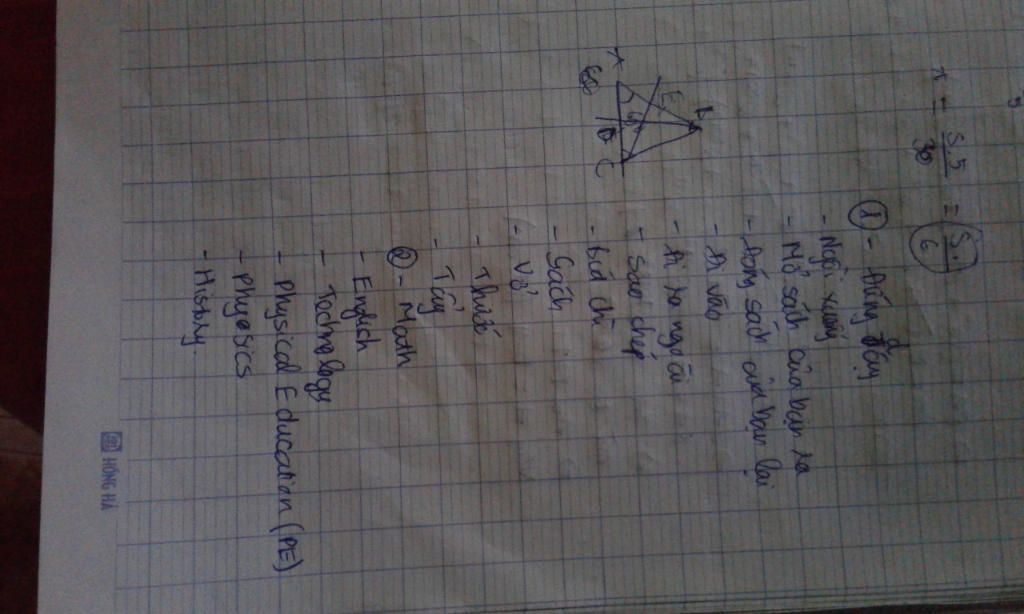 x = 5.5 / 30 = 5. / 6
A E B D C
① - Đứng dậy
- Ngồi xuống
- Mở sách của bạn ra
- Đóng sách của bạn lại
- Đi vào
- Đi ra ngoài
- Sao chép
- Bút chì
- Sách
- Vở
- Thước
- Tẩy
② - Math
- English
- Technology
- Physical Education (PE)
- Physics
- History.
HỒNG HÀ